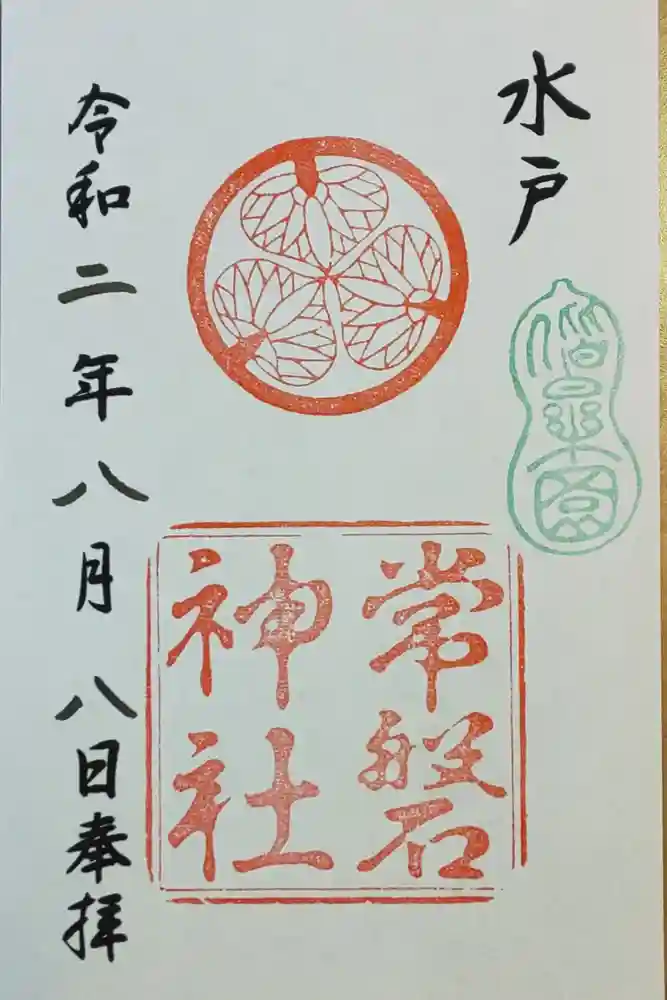 水戸
偕楽園
常磐
神社
令和二年八月八日奉拝